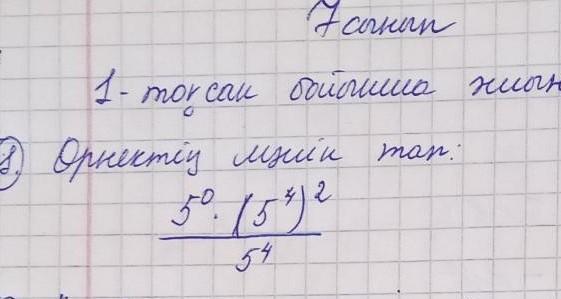 7 сынып
1-тоқсан бойынша жиын
1. Өрнектің мәнін тап:
5⁰ · (5⁴)²
5⁴